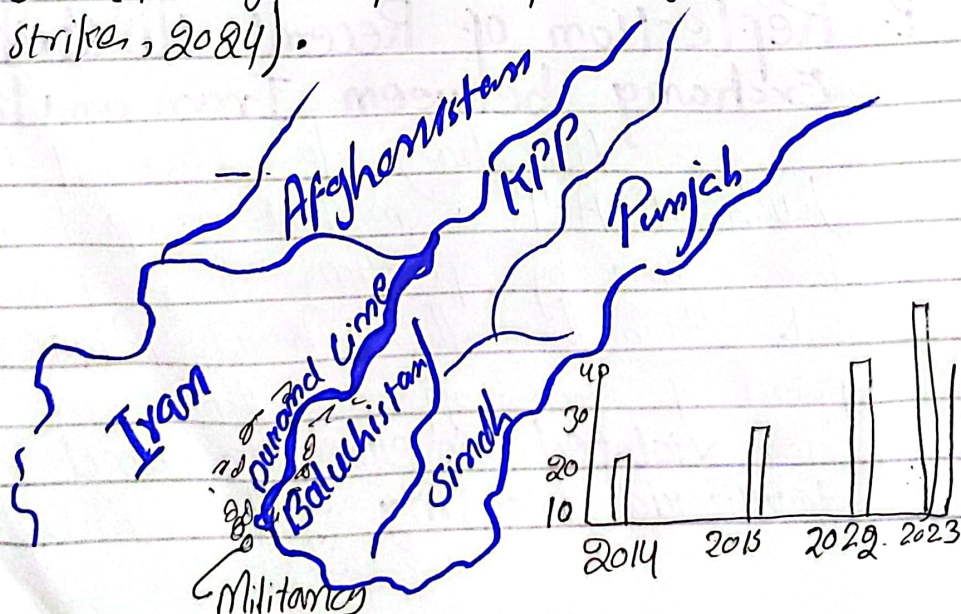 strikes, 2024).
Afghanistan
KPP
Punjab
Iran
Durand Line
Baluchistan
Sindh
Militancy
40
30
20
10
2014 2015 2022. 2023